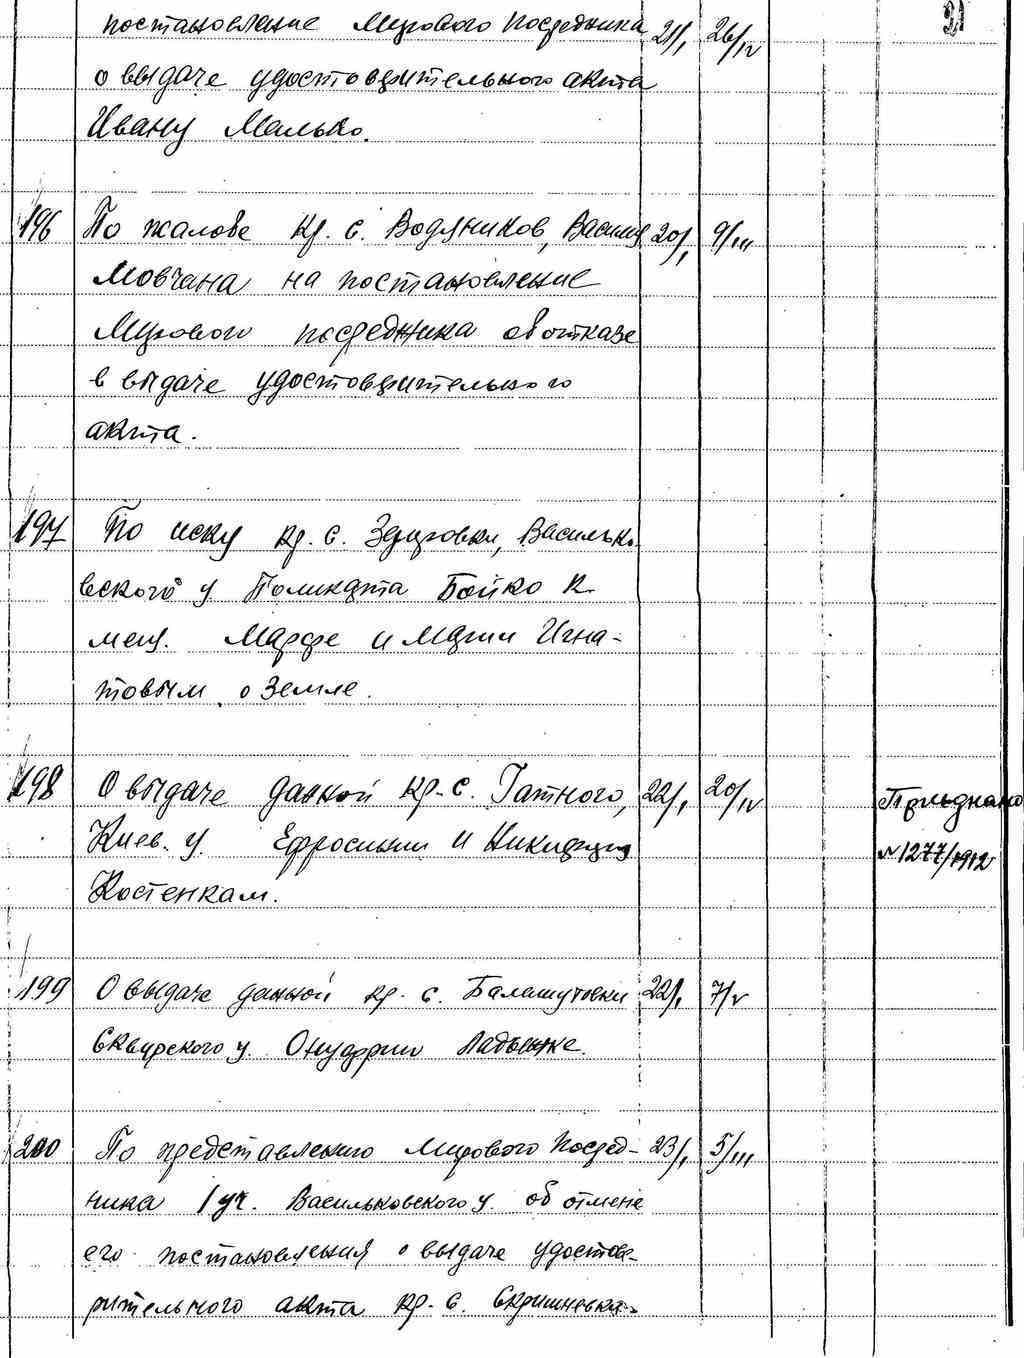 21
постановление Мирового Посредника 21/I 26/IV
о выдаче удостоверительного акта
Ивану Малько.
196 По жалобе кр. с. Водяников, Василия 20/I 9/III
Мовчана на постановление
Мирового посредника об отказе
в выдаче удостоверительного
акта.
197 По иску кр. с. Зеленовки, Василько-
вского у. Поликарпа Бойко к
мещ. Марфе и Марии Игна-
товым о земле.
198 О выдаче данной кр. с. Гатного, 22/I 20/IV Приднано
Киев. у. Ефросинии и Никифору №1277/1912
Костенкам.
199 О выдаче данной кр. с. Балашутовки 22/I 7/V
Сквирского у. Онуфрию Ладыжке.
200 По представлению Мирового Посред- 23/I 5/III
ника 1 уч. Васильковского у. об отмене
его постановления о выдаче удостове-
рительного акта кр. с.